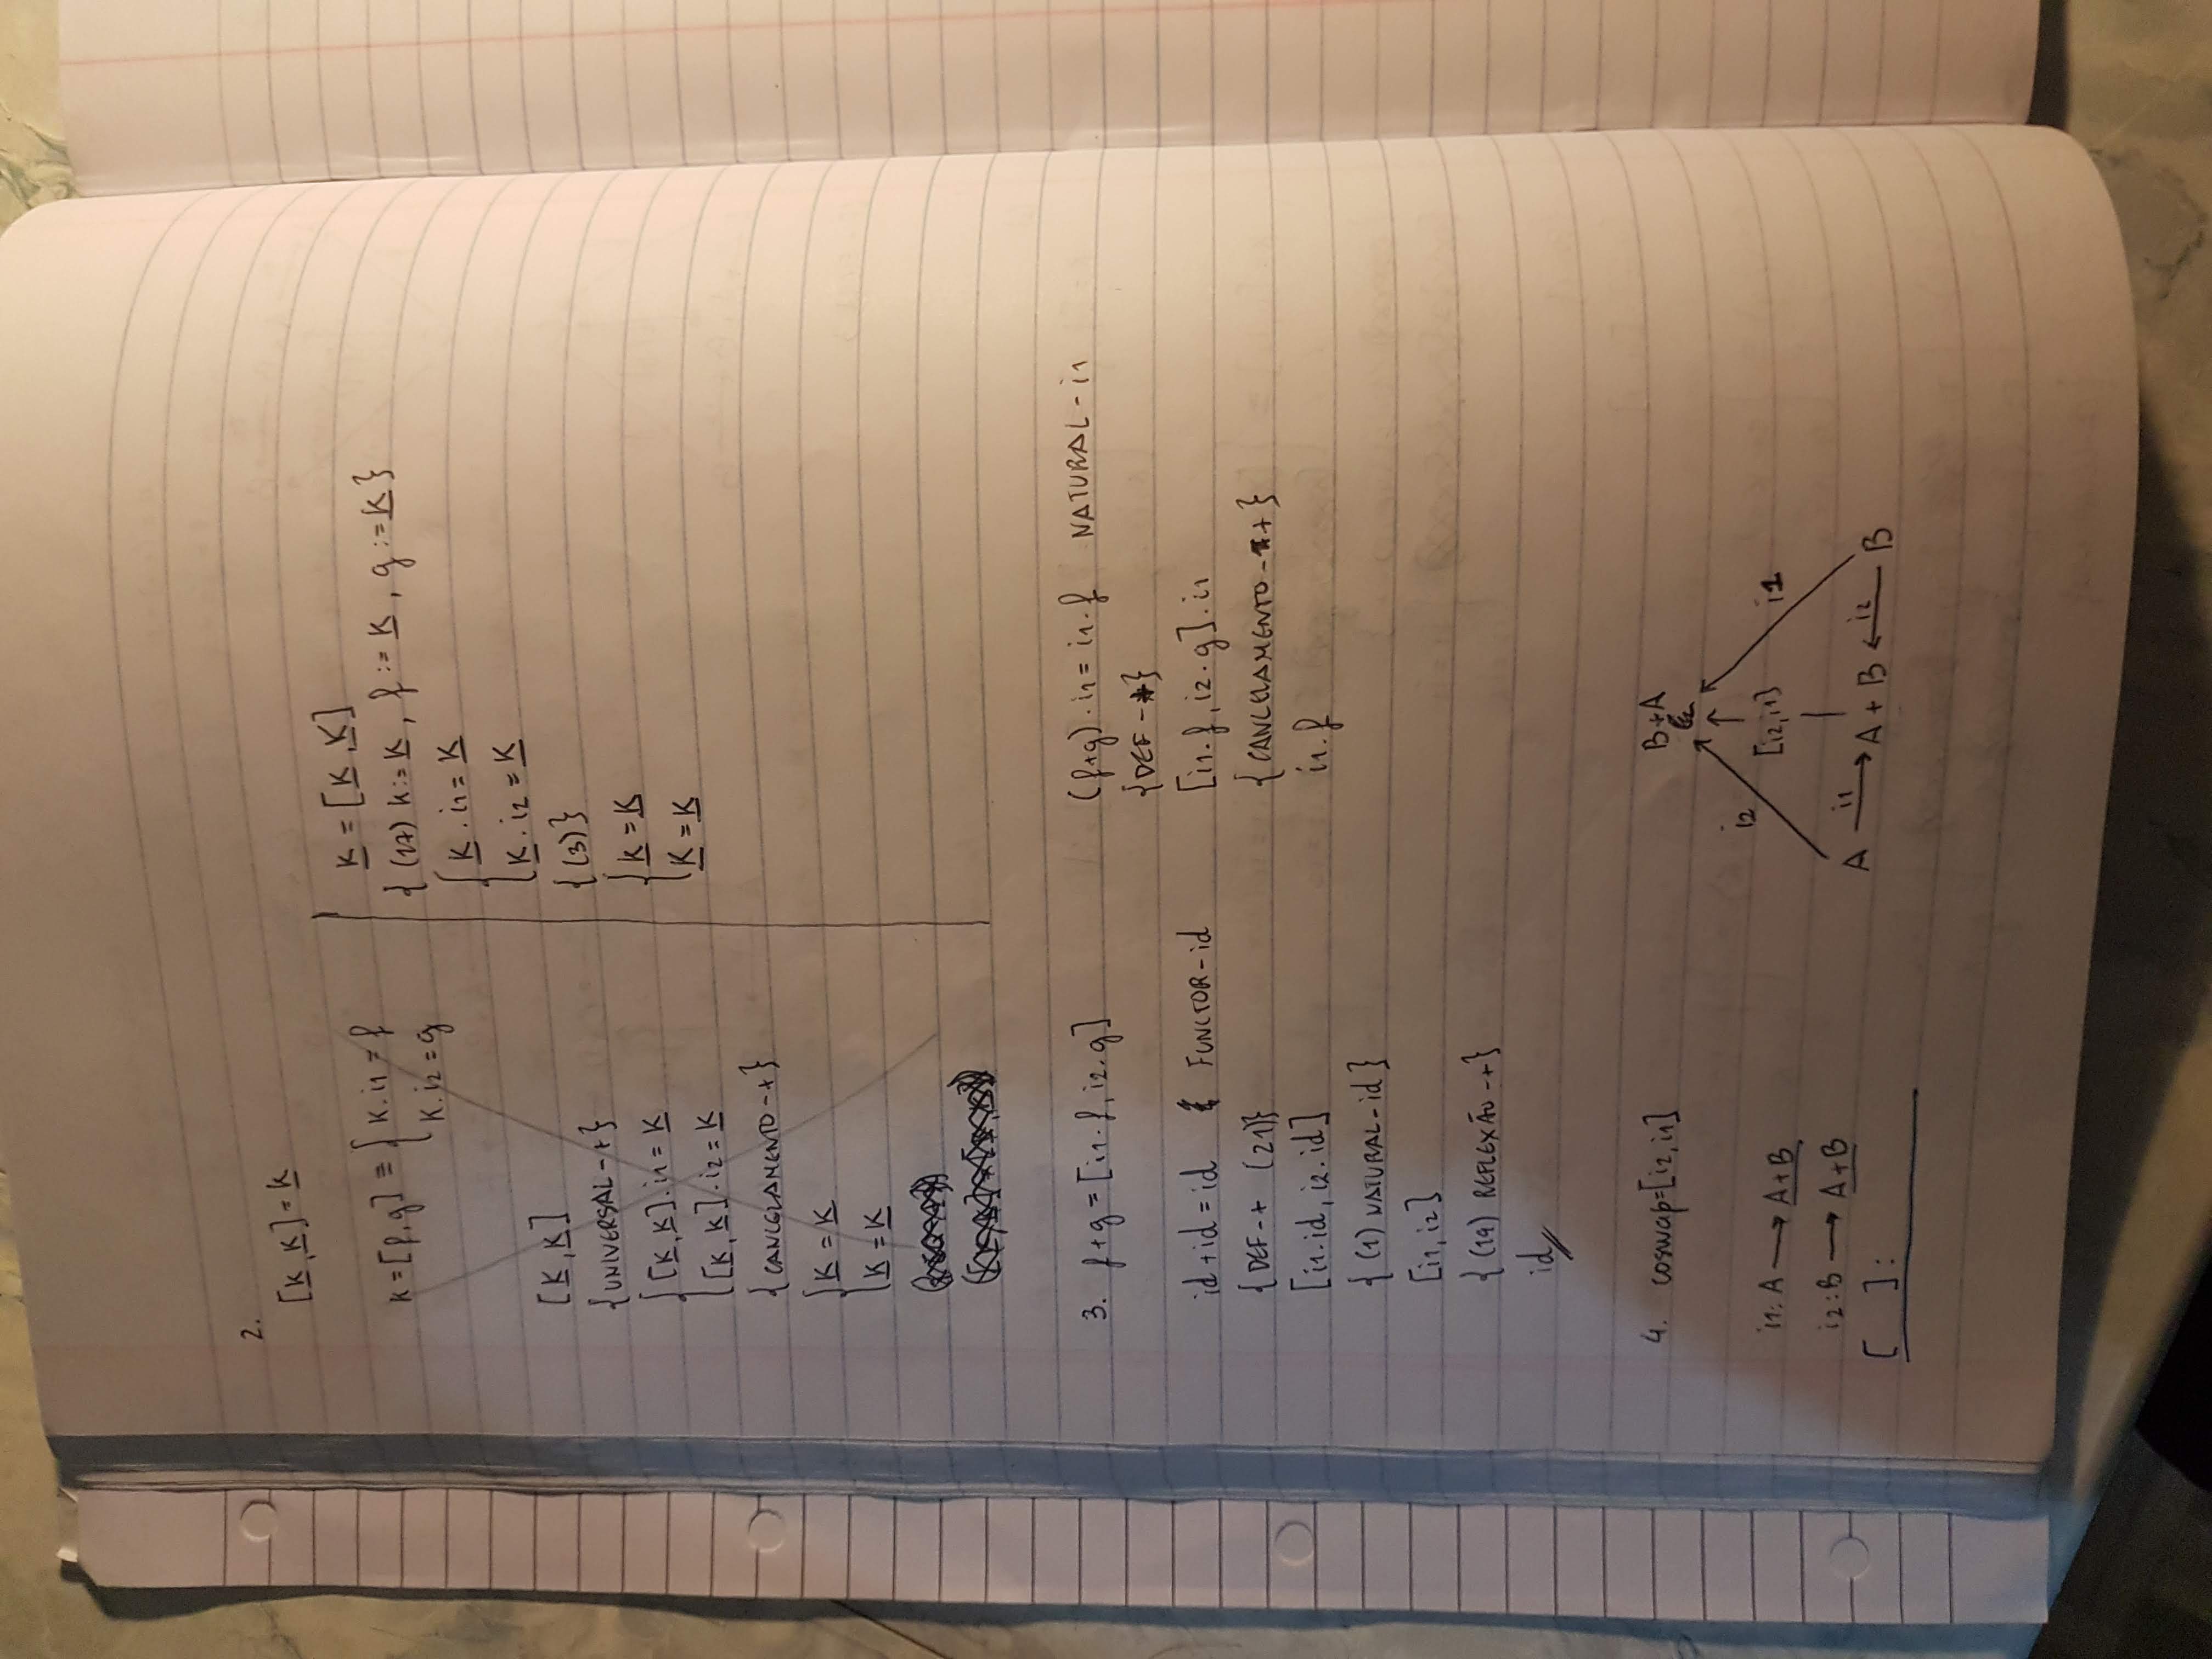 2.
[k, k] = k
k = [f, g] ≡ { k . i1 = f
k . i2 = g
[k, k]
{UNIVERSAL-+}
{ [k, k] . i1 = k
[k, k] . i2 = k
{CANCELAMENTO-+}
{ k = k
k = k
k = [k, k]
{ (17) k := k, f := k, g := k }
{ k . i1 = k
k . i2 = k
{(3)}
{ k = k
k = k
3. f+g = [i1 . f, i2 . g]
id + id = id FUNCTOR-id
{ DEF-+ (21)}
[i1 . id, i2 . id]
{ (1) NATURAL-id }
[i1, i2]
{ (19) REFLEXÃO-+}
id //
(f+g) . i1 = i1 . f NATURAL-i1
{DEF-+}
[i1 . f, i2 . g] . i1
{ CANCELAMENTO-+ }
i1 . f
4. coswap=[i2, i1]
i1: A → A+B
i2: B → A+B
[ ]:
B+A
i2 [i2, i1] i1
A i1→ A + B ←i2 B